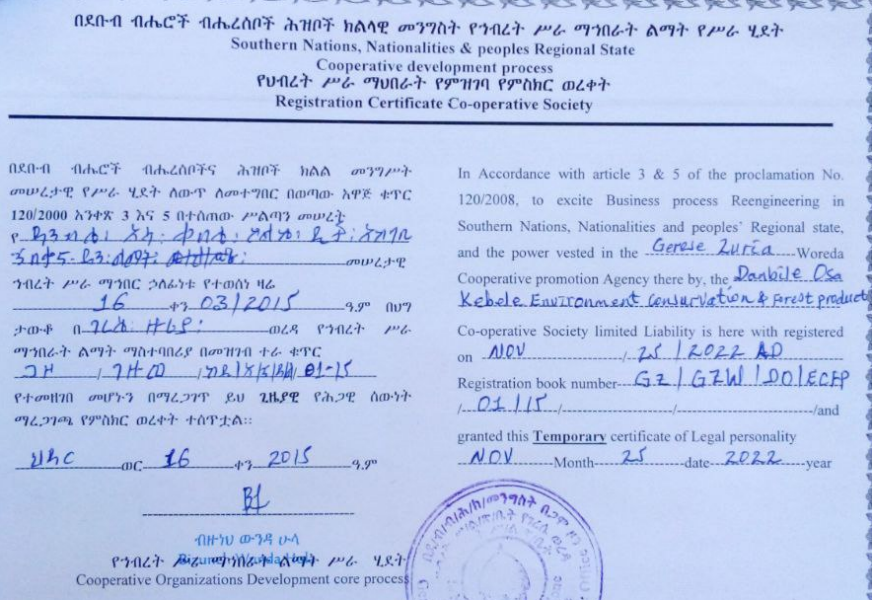 በደቡብ ብሔሮች ብሔረሰቦች ሕዝቦች ክልላዊ መንግስት የኅብረት ሥራ ማኅበራት ልማት የሥራ ሂደት
Southern Nations, Nationalities & peoples Regional State
Cooperative development process
የህብረት ሥራ ማህበራት የምዝገባ የምስክር ወረቀት
Registration Certificate Co-operative Society
በደቡብ ብሔሮች ብሔረሰቦችና ሕዝቦች ክልል መንግሥት
መሠረታዊ የሥራ ሂደት ለውጥ ለመተግበር በወጣው አዋጅ ቁጥር
120/2000 አንቀጽ 3 እና 5 በተሰጠው ሥልጣን መሠረት
የ
መሠረታዊ
ኅብረት ሥራ ማኅበር ኃላፊነቱ የተወሰነ ዛሬ
16 ቀን 03/2015 ዓ.ም በህግ
ታውቆ በ ገረሴ ዙሪያ ወረዳ የኅብረት ሥራ
ማኅበራት ልማት ማስተባበሪያ በመዝገብ ተራ ቁጥር
01-15
የተመዘገበ መሆኑን በማረጋገጥ ይህ ጊዜያዊ የሕጋዊ ሰውነት
ማረጋገጫ የምስክር ወረቀት ተሰጥቷል።
ህዳር ወር 16 ቀን 2015 ዓ.ም
ብዙነህ ውንዳ ሁላ
የኅብረት ሥራ ማኅበራት ልማት ሥራ ሂደት
Cooperative Organizations Development core process
In Accordance with article 3 & 5 of the proclamation No.
120/2008, to excite Business process Reengineering in
Southern Nations, Nationalities and peoples` Regional state,
and the power vested in the Gerese Zuria Woreda
Cooperative promotion Agency there by, the Danbile Osa
Kebele Environment Consurvation & Forest product
Co-operative Society limited Liability is here with registered
on NOV / 25 / 2022 AD
Registration book number GZ / GZW / DO / ECFP
/ 01 / 15 / / /and
granted this Temporary certificate of Legal personality
NOV Month 25 date 2022 year